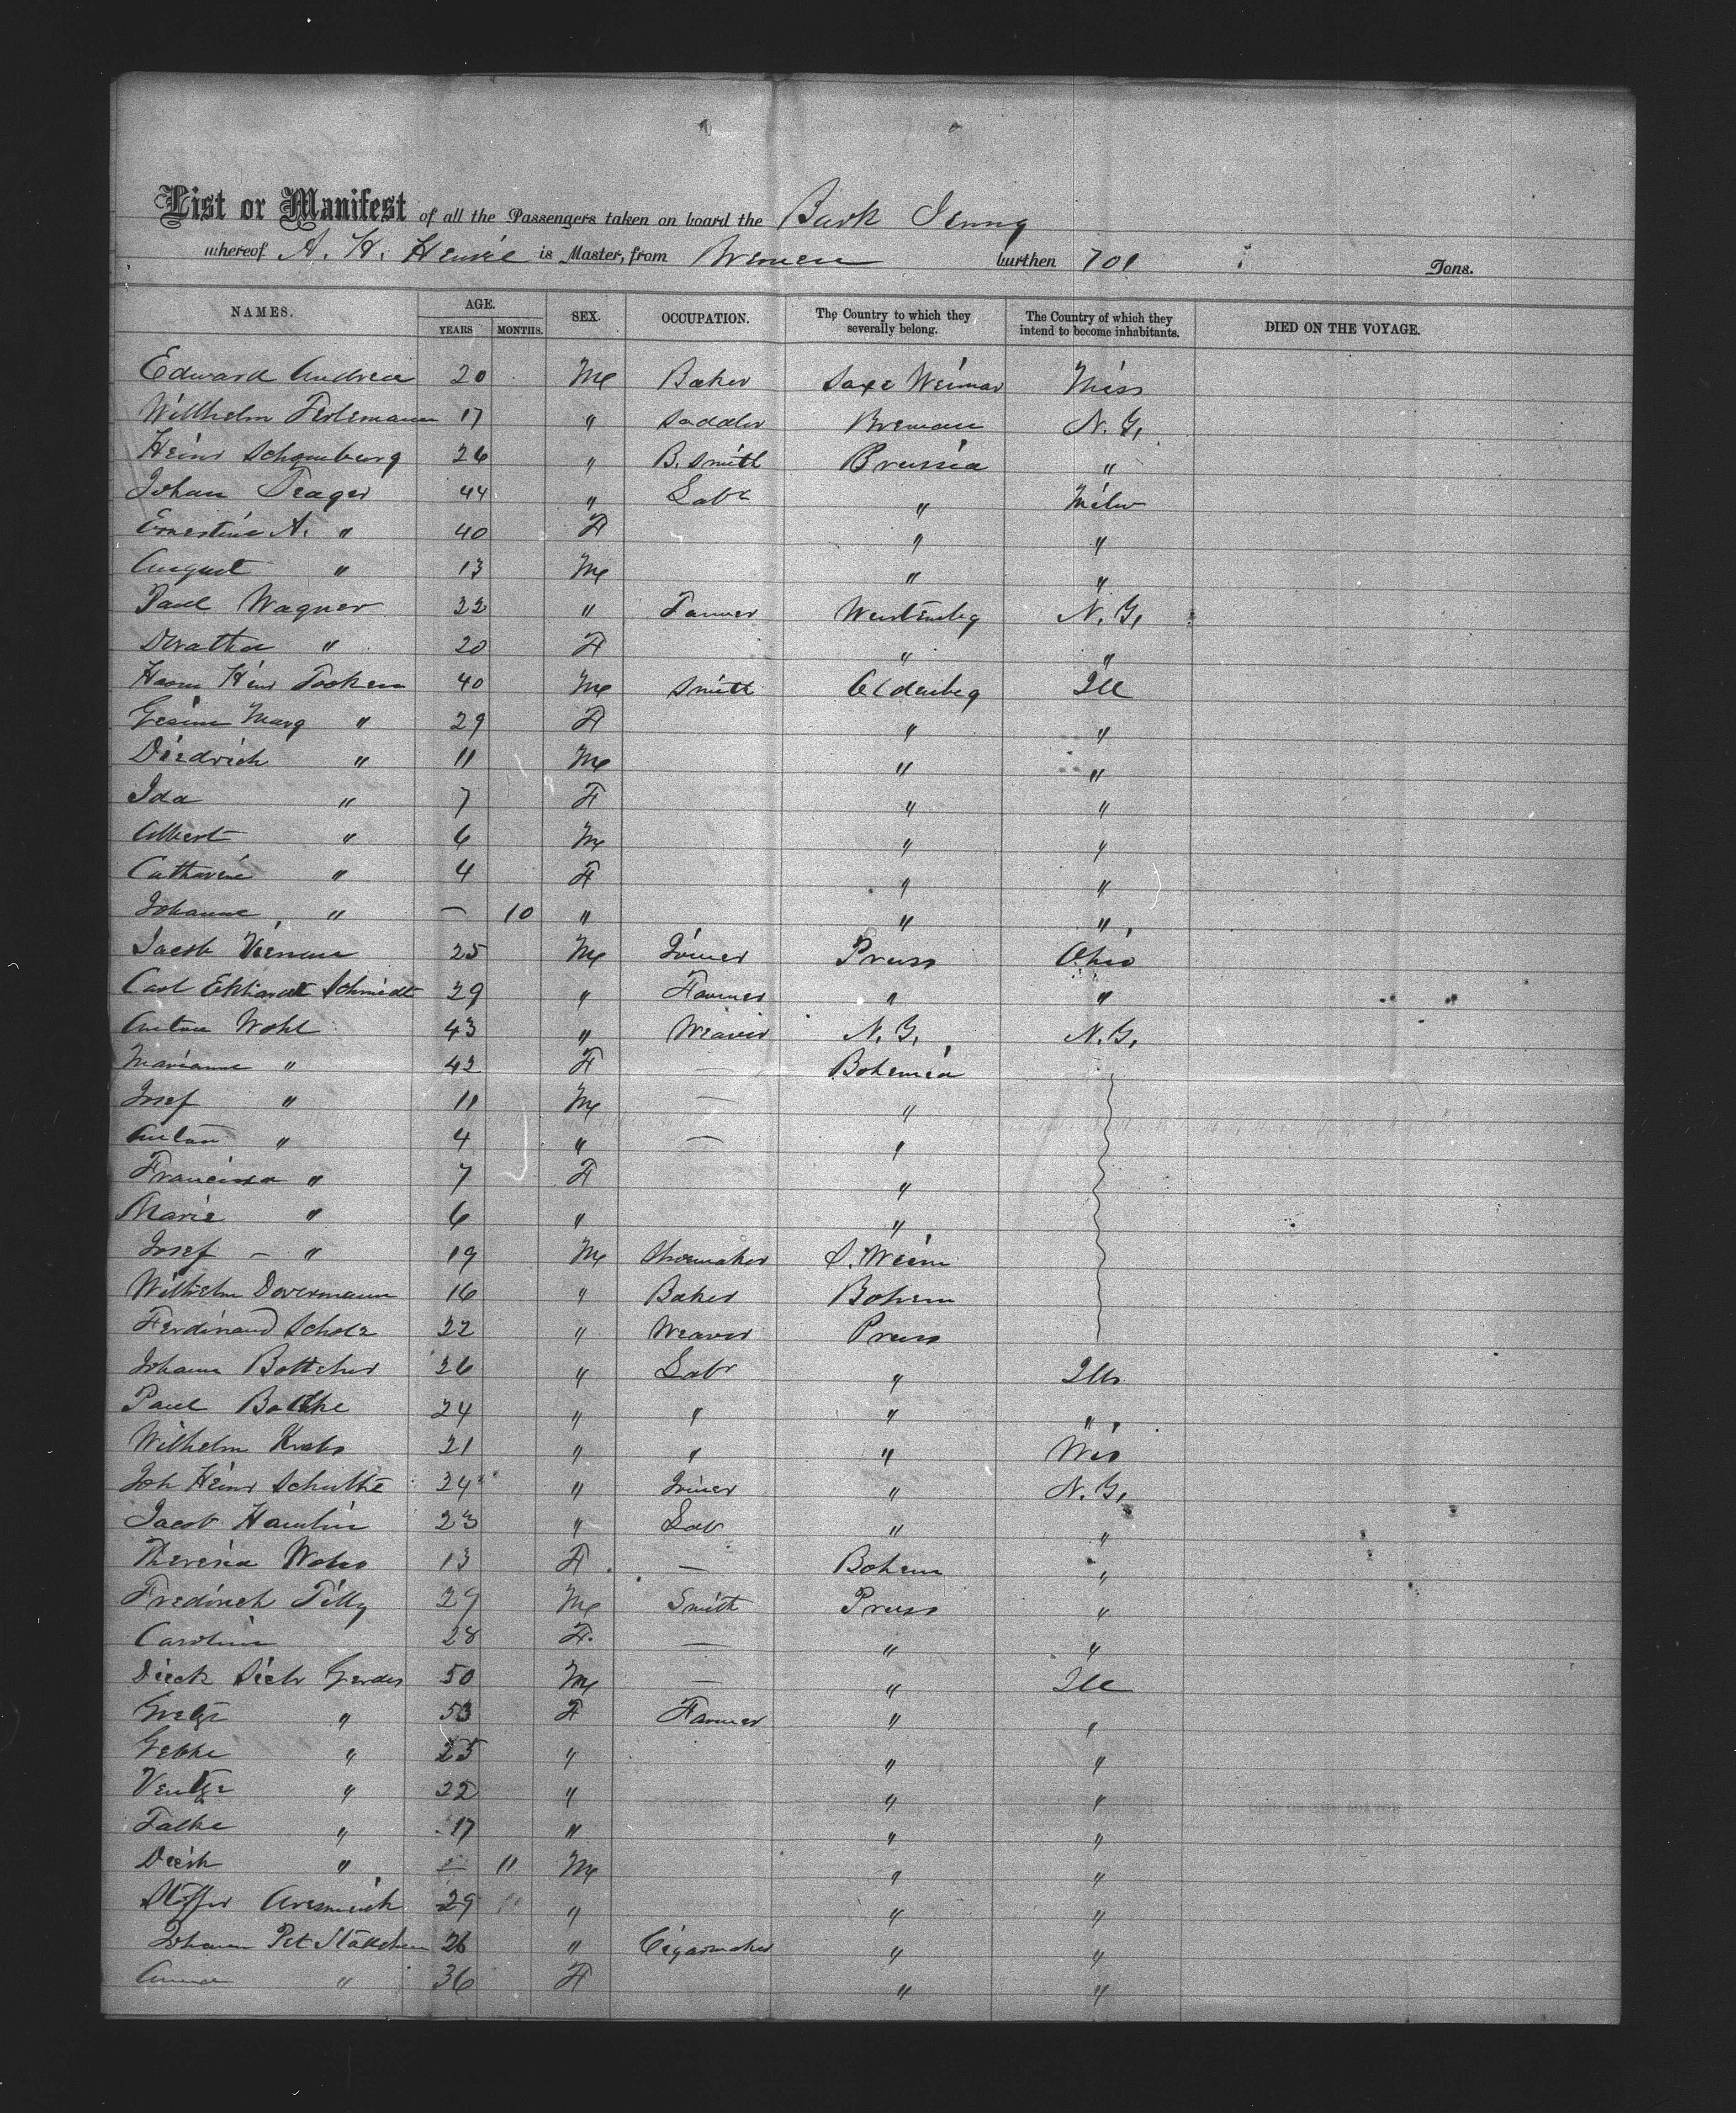 List or Manifest of all the Passengers taken on board the Bark Jenny
whereof A. H. is Master, from Bremen burthen 701 Tons.
NAMES. AGE. YEARS MONTHS. SEX. OCCUPATION. The Country to which they severally belong. The Country of which they intend to become inhabitants. DIED ON THE VOYAGE.
Edward Andrea 20 M Baker Saxe Weimar Miss
Willhelm 17 " Saddler Bremen N.Y.
Heinr Schomburg 26 " B. Smith Prussia "
Johan 44 " Labr " Milw
Ernestine A. " 40 F " "
August " 13 M " "
Paul Wagner 22 " Wurtembg N.Y.
Doratha " 20 F " "
Harm Hinr Focken 40 M Smith Oldenbeg Ill
Gesine Marg " 29 F " "
Diedrich " 11 M " "
Ida " 7 F " "
Albert " 6 M " "
Catharine " 4 F " "
Johanne " — 10 " " "
Jacob 25 M Joiner Pruss Ohio
Carl Ekhardt Schmidt 29 " Farmer " "
Anton Wohl 43 " Weaver N.Y. N.Y.
Marianne " 42 F — Bohemia
Josef " 11 M — "
Anton " 4 " — "
Francisca " 7 F "
Marie " 6 " "
Josef — " 19 M Shoemaker S. Weim
Wilhelm Dovermann 16 " Baker Bohem
Ferdinand Scholz 22 " Weaver Pruss
Johann Bottcher 26 " Labr " Ills
Paul 24 " " " "
Wilhelm Krebs 21 " " " Wis
Joh Heinr Schulthe 24 " Joiner " N.Y.
Jacob Hamlin 23 " Lab " "
Theresia 13 F — Bohem "
Fredirich Tilly 29 M Smith Pruss "
Caroline 28 F. — " "
Dirk Gerdes 50 M — " Ill
Gretje " 53 F Farmer " "
Gebke " 25 " " "
" 22 " " "
Falke " 17 " " "
Dirk " — 11 M " "
29 " " "
Johann Pet 26 " Cigarmaker " "
Anna " 36 F " "